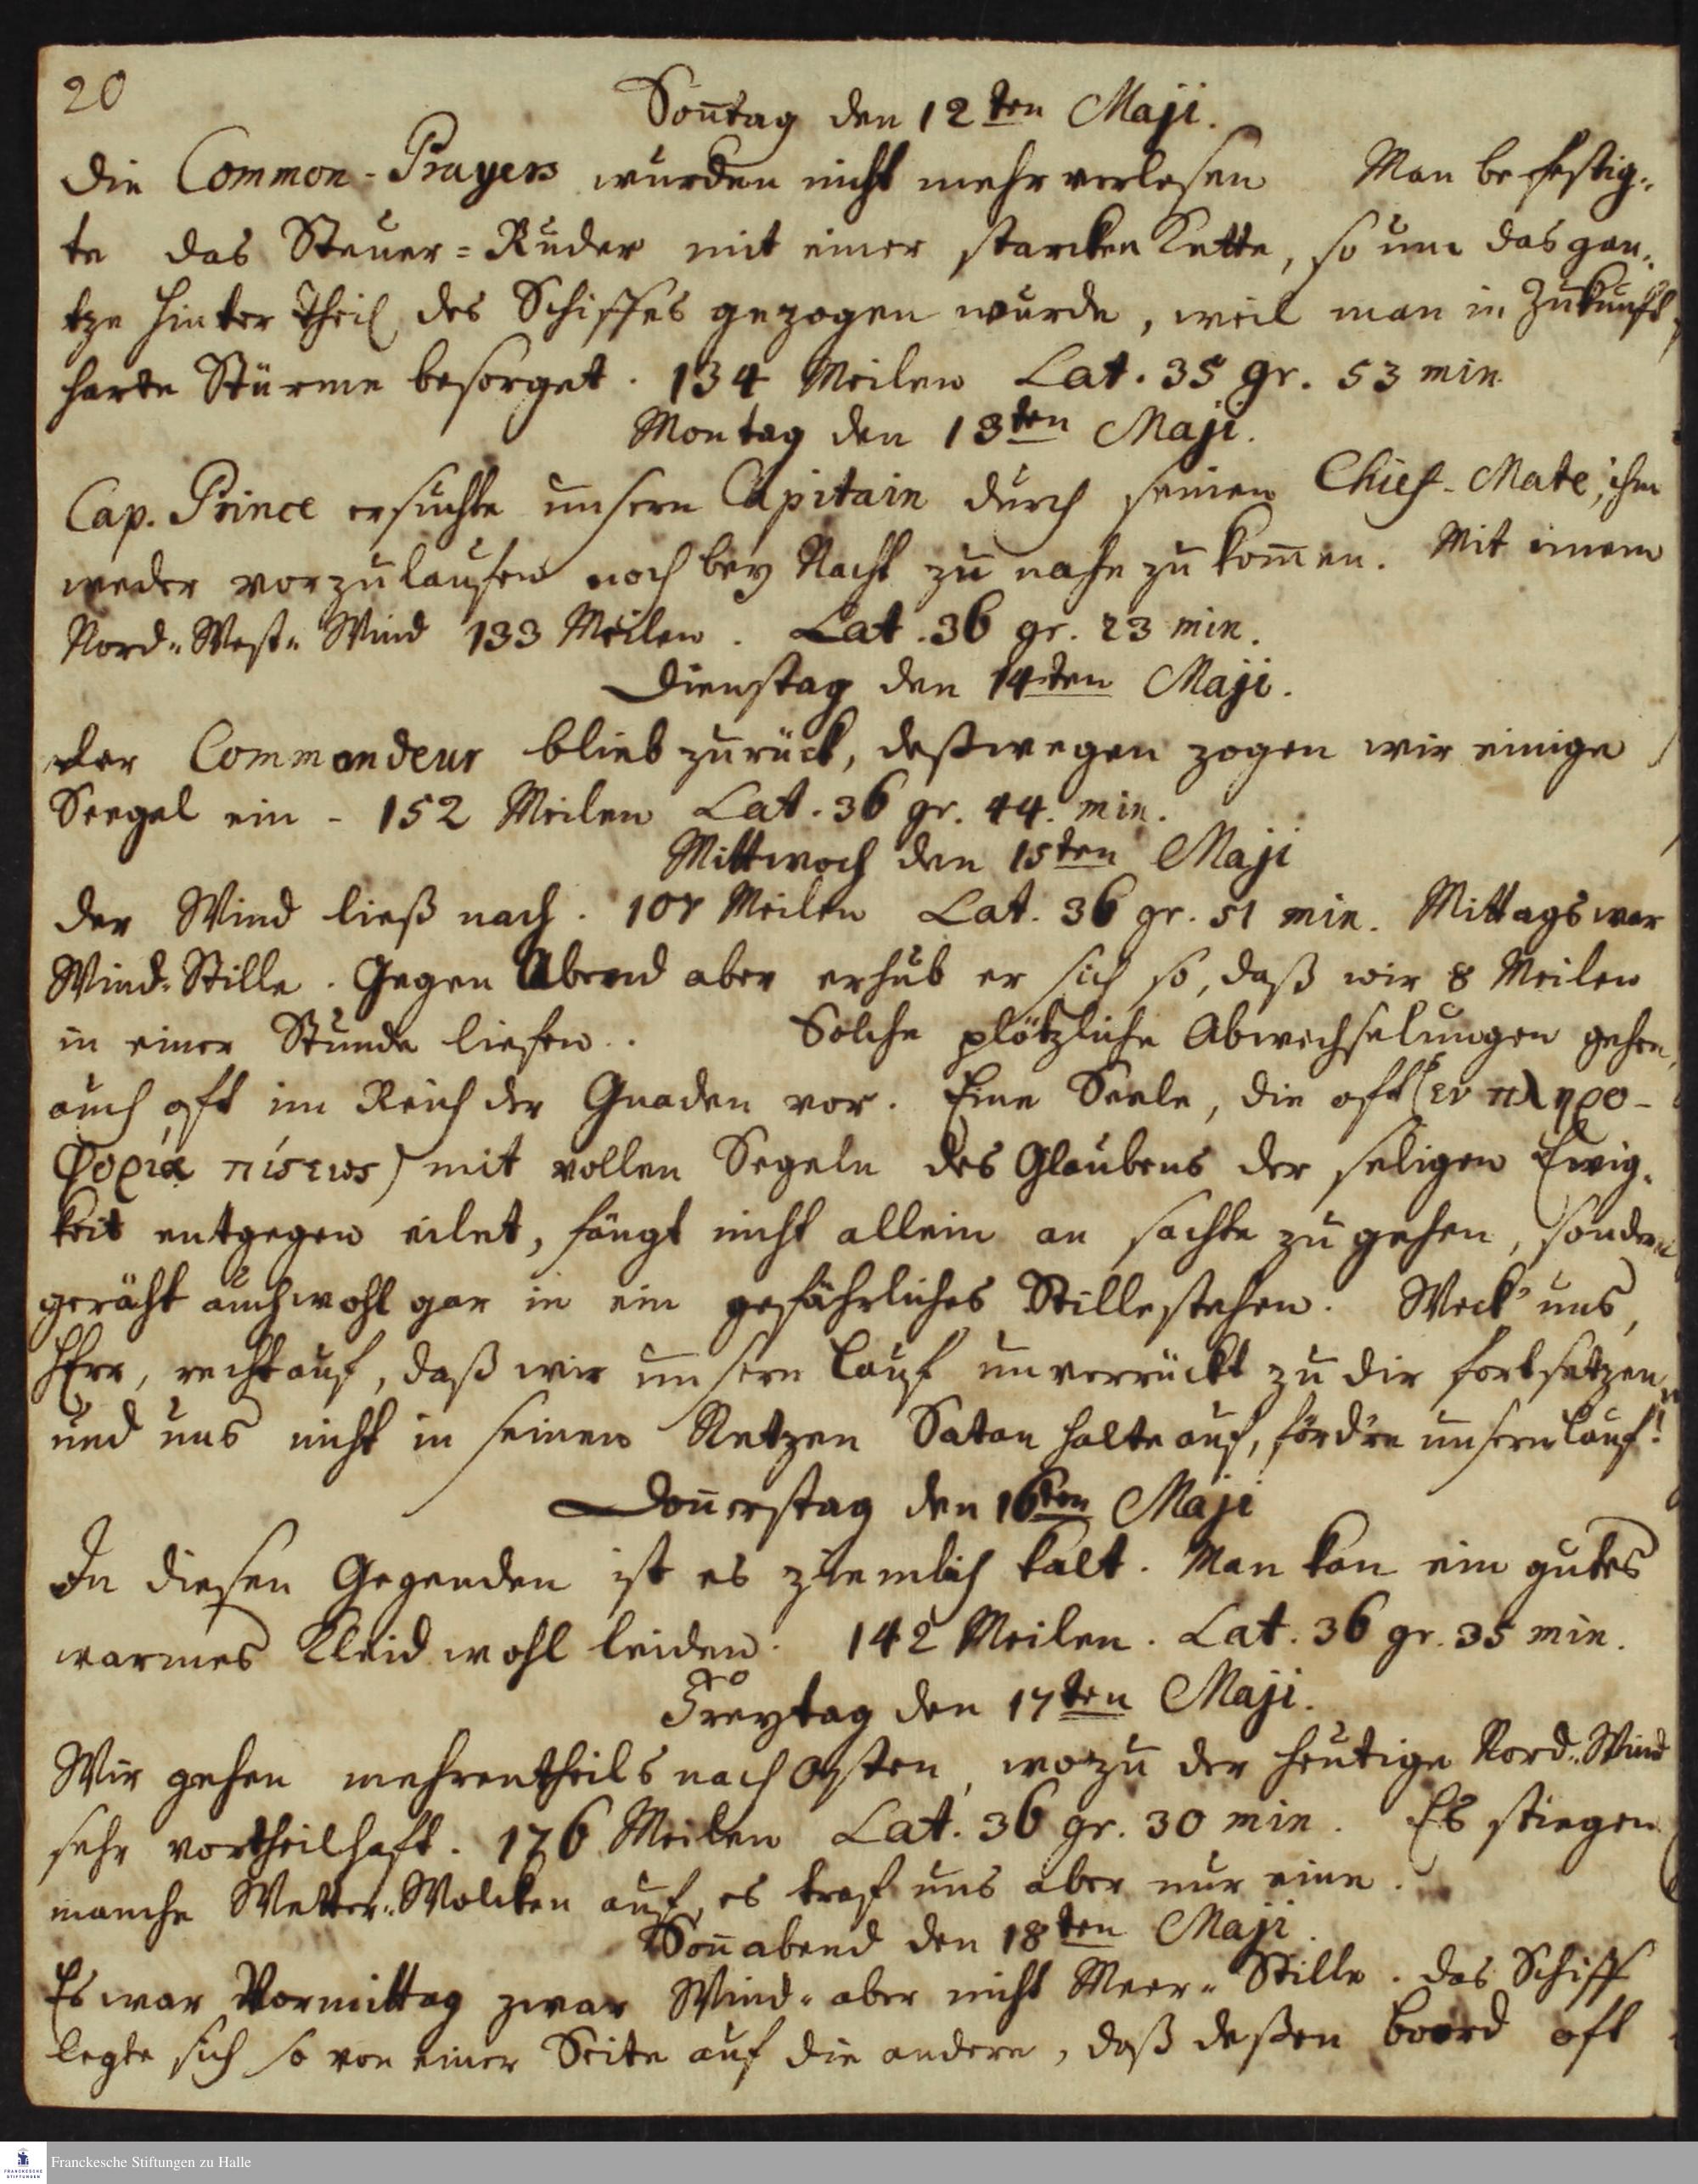 20
Son̄tag den 12ten Maji.
Die Common-Prayers wurden nicht mehr verlesen Man befestig„
te das Steuer=Ruder mit einer starcken Kette, so um das gan„
tze hinter Theil des Schiffes gezogen wurde, weil man in Zukunft
harte Stürme besorget. 134 Meilen Lat. 35 gr. 53 min.
Montag den 13ten Maji.
Cap. Prince ersuchte unsern Capitain durch seinen Chief-Mate, ihm
weder vorzulaufen noch bey Nacht zu nahe zu kom̄en. Mit einem
Nord„West„Wind 133 Meilen. Lat. 36 gr. 23 min.
Dienstag den 14ten Maji.
Der Commandeur blieb zurück, deßwegen zogen wir einige
Seegel ein - 152 Meilen Lat. 36 gr. 44. min.
Mittwoch den 15ten Maji
Der Wind ließ nach. 107 Meilen Lat. 36 gr. 51 min. Mittags war
Wind„Stille. Gegen Abend aber erhub er sich so, daß wir 8 Meilen
in einer Stunde liefen. Solche plötzliche Abwechselungen gehen
auch oft im Reich der Gnaden vor. Eine Seele, die oft (εν πληρο-
φορία πίστεως) mit vollen Segeln des Glaubens der seligen Ewig„
keit entgegen eilet, fängt nicht allein an sachte zu gehen, sondern
geräht auch wohl gar in ein gefährliches Stillestehen. Weck' uns,
HErr, recht auf, daß wir unsern Lauf unverrückt zu dir fortsetzen„
und uns nicht in seinen Netzen Satan halte auf, förd're unsern Lauf!
Don̄erstag den 16ten Maji
In diesen Gegenden ist es ziemlich kalt. Man kan ein gutes
warmes Kleid wohl leiden. 142 Meilen. Lat. 36 gr. 35 min.
Freytag den 17ten Maji.
Wir gehen mehrentheils nach Osten, wozu der heutige Nord„Wind
sehr vortheilhaft. 176 Meilen Lat. 36 gr. 30 min. Es stiegen
manche Wetter„Wolcken auf, es traf uns aber nur eine.
Son̄abend den 18ten Maji.
Es war Vormittag zwar Wind„ aber nicht Meer„Stille. Das Schiff
legte sich so von einer Seite auf die andere, daß deßen boord oft
Franckesche Stiftungen zu Halle
FRANCKESCHE STIFTUNGEN